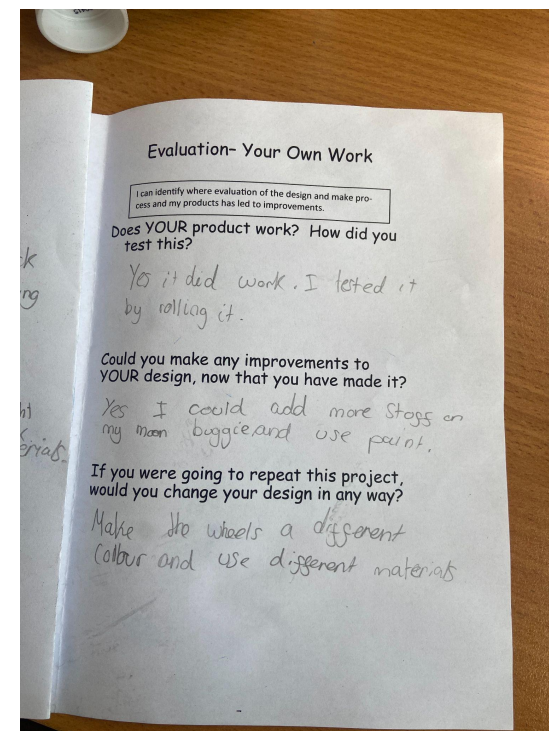 Evaluation- Your Own Work
I can identify where evaluation of the design and make pro-
cess and my products has led to improvements.
Does YOUR product work? How did you
test this?
Yes it did work. I tested it
by rolling it.
Could you make any improvements to
YOUR design, now that you have made it?
Yes I could add more Stogg on
my moon buggie, and use paint.
If you were going to repeat this project,
would you change your design in any way?
Make the wheels a different
Colour and use different materials
k
ng
ht
erials.